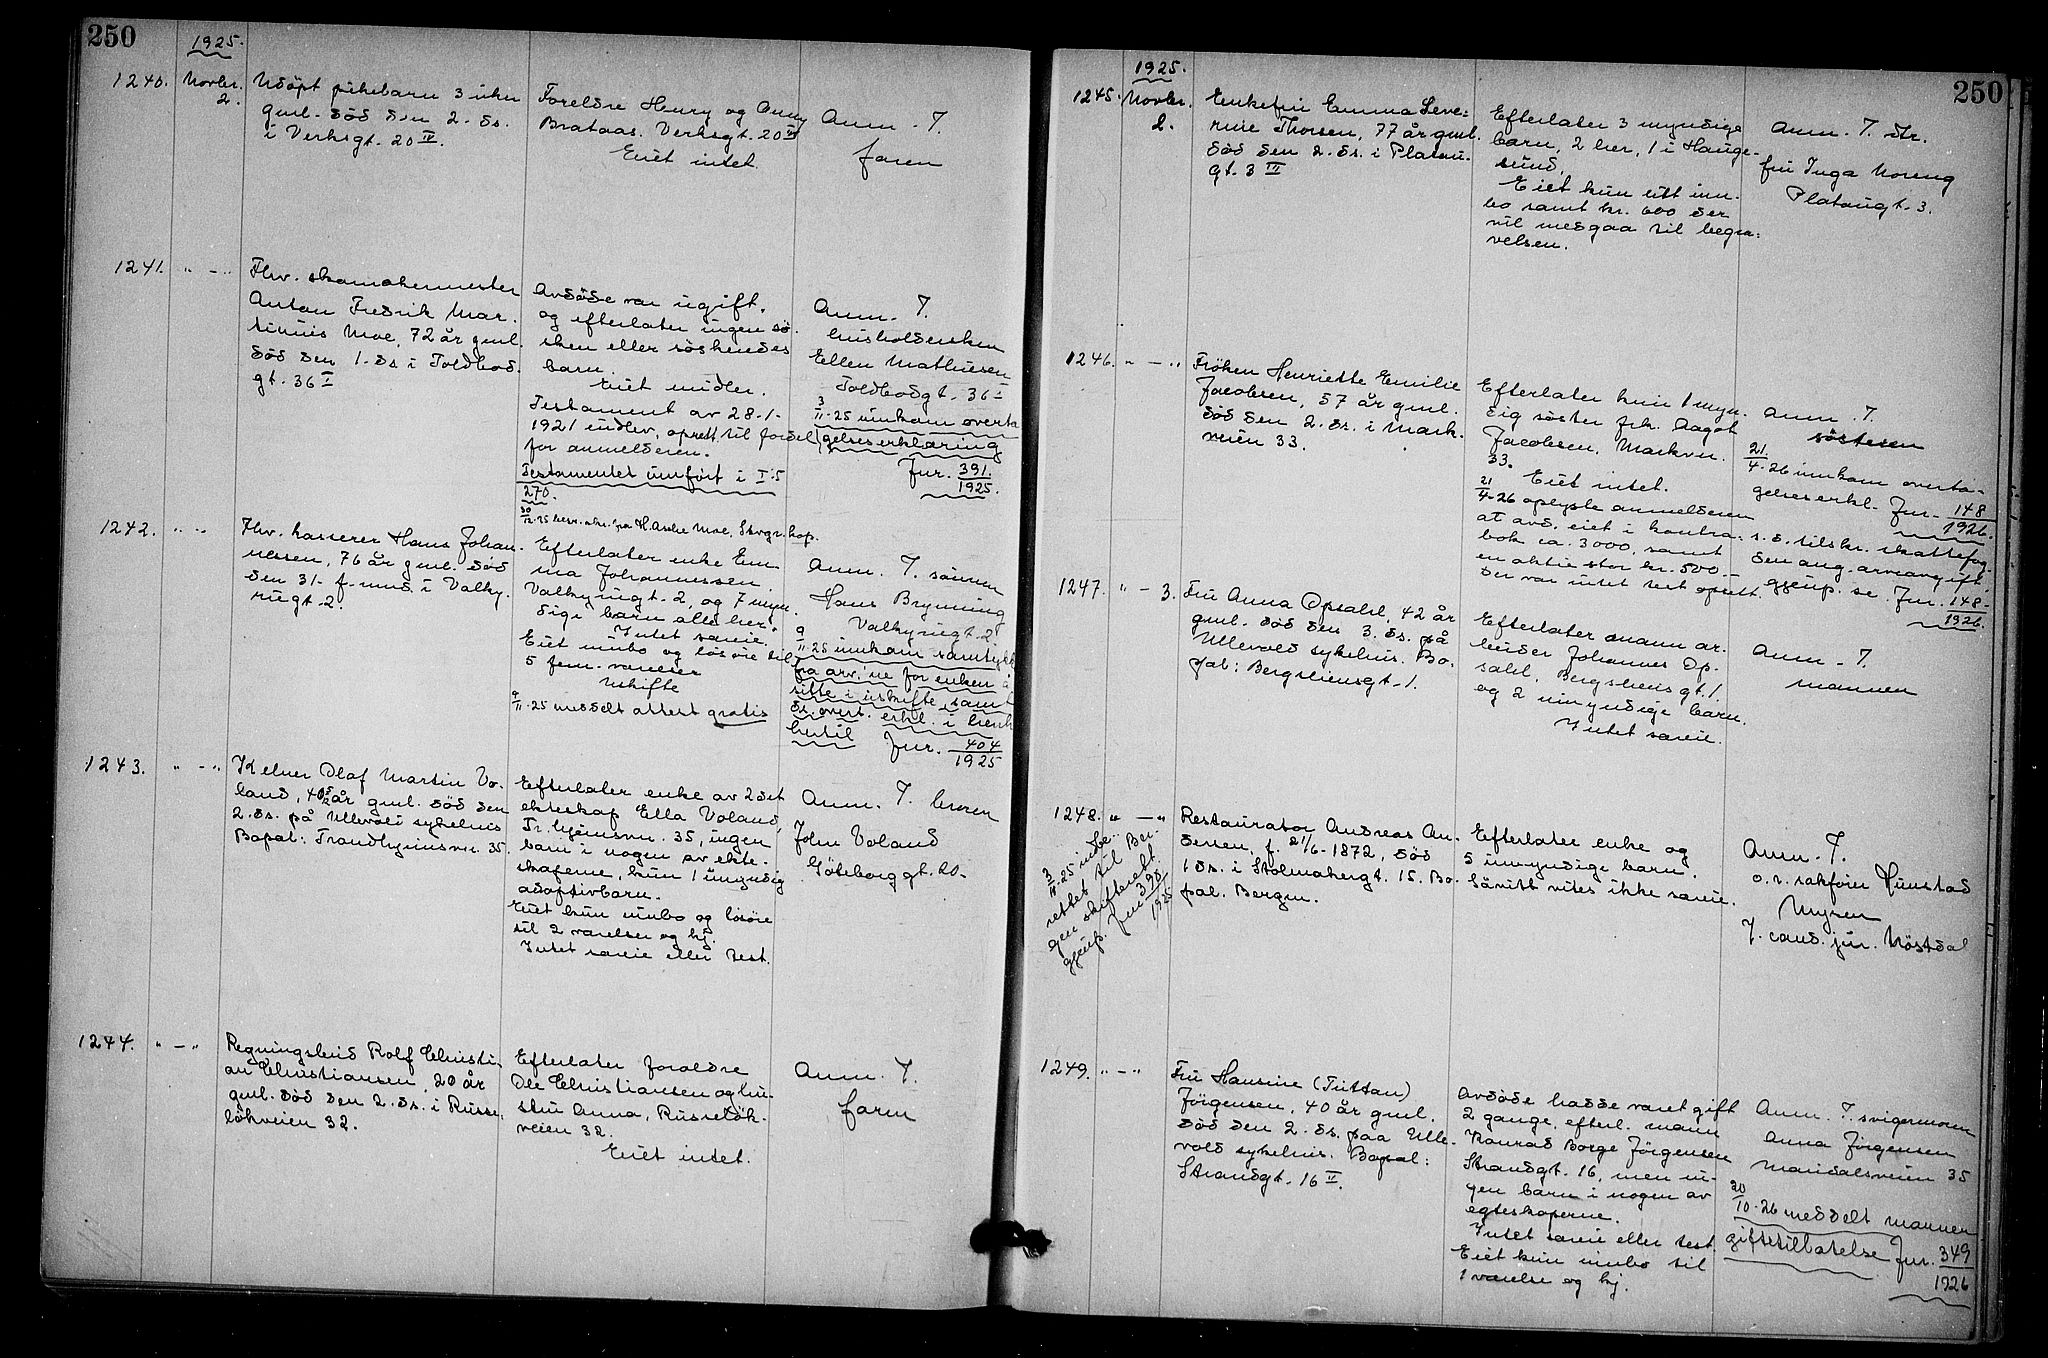 250
1925.
1240.
Novbr.
2.
Udöpt pikebarn 3 uker
gml. död den 2. ds.
i Verksgt. 20 IV.
Foreldre Henry og Anny
Brataas. Verksgt. 20 IV
Eiet intet.
Anm. T.
faren
1241.
" - "
Fhv. skomakermester
Anton Fredrik Mar-
tinius Moe, 72 år gml.
död den 1. ds. i Toldbod.
gt. 36 I
Avdöde var ugift.
og efterlater ingen sö-
sken eller söskendes
barn.
Eiet midler.
Testament av 28-1-
1921 indlev. oprett. til fordel
for anmelderen.
Testamentet innfört i I. 5
270.
30/12-25 besv. skr. fra H. Asche Moe, Skrgr. kap.
Anm. T.
husholdersken
Ellen Mathiesen
Toldbodgt. 36 I
3/11-25 innkom overta
gelseserklæring
Jnr. 391/1925.
1242.
" - "
Fhv. kasserer Hans Johan-
nessen, 76 år gml. död
den 31. f. mnd. i Valky-
riegt. 2.
Efterlater enke Em-
ma Johannessen
Valkyriegt. 2, og 7 myn-
dige barn alle her.
Intet særeie.
Eiet innbo og lösöre til
5 fem værelser
Uskifte
9/11-25 meddelt attest gratis
Anm. T. sönnen
Hans Brynning
Valkyriegt. 2
9/11-25 innkom samtykke
fra arv'ne for enken å
sitte i uskifte, samt
ds. overt. erkl. i henh
hertil Jnr. 404/1925
1243.
" - "
Kelner Olaf Martin Vo-
land, 40 5/12 år gml. död den
2. ds. på Ullevål sykehus
Bopal: Trondhjemsvn. 35.
Efterlater enke av 2det
ekteskap Ella Voland,
Tr.hjemsvn. 35, ingen
barn i nogen av ekte-
skapene, kun 1 umyndig
adoptivbarn.
Eiet kun innbo og lösöre
til 2 værelser og kj.
Intet særeie eller test.
Anm. T. broren
John Voland
Göteborggt. 20.
1244.
" - "
Regningsbud Rolf Christi-
an Christiansen, 20 år
gml. död den 2. ds. i Russe-
lökveien 32.
Efterlater foreldre
Ole Christiansen og hu-
stru Anna, Russelök-
veien 32.
Eiet intet.
Anm. T.
faren
1925.
250
1245.
Novbr.
2.
Enkefru Emma Seve-
rine Thorsen, 77 år gml.
död den 2. ds. i Platou-
gt. 3 III
Efterlater 3 myndige
barn, 2 her, 1 i Hauge-
sund.
Eiet kun litt inn-
bo samt kr. 600 der
vil medgaa til begra-
velsen.
Anm. T. dtr.
fru Inga Noreng
Platougt. 3.
1246.
" - "
Fröken Henriette Emilie
Jacobsen, 57 år gml.
död den 2. ds. i Mark-
veien 33.
Efterlater kun 1 myn-
dig söster frk. Aagot
Jacobsen, Markvn.
33.
Eiet intet.
21/4-26 oplyste anmelderen
at avd. eiet i kontra-
bok ca. 3000, samt
en aktie stor kr. 500.-
Der var intet test oprett.
Anm. T.
sösteren
21/4-26 innkom overta-
gelseserkl. Jnr. 148/1926.
s. d. tilskr. skattefog-
den ang. arveavgift,
gjenp. se Jnr. 148/1926.
1247.
" - 3.
Fru Anna Opsahl, 42 år
gml. död den 3. ds. på
Ullevold sykehus. Bo-
pal: Bergsliensgt. 1.
Efterlater mann ar-
beider Johannes Op-
sahl, Bergsliens gt. 1
og 2 umyndige barn.
Intet særeie.
Anm. T.
mannen
1248.
" - "
3/11-25 inbe-
rettet til Ber-
gen skifterett.
gjenp. Jnr 390/1925
Restauratör Andreas An-
dersen, f. 21/6-1872, död
1 ds. i Stolmakergt. 15. Bo-
pal. Bergen.
Efterlater enke og
5 umyndige barn.
Såvitt vites ikke særeie.
Anm. T.
o. r. sakförer Hunstad
Myren
v. cand. jur. Nöstdal
1249.
" - "
Fru Hansine (Tuttan)
Jörgensen, 40 år gml.
död den 2. ds. paa Ulle-
vold sykehus. Bopal:
Strandgt. 16 II.
Avdöde hadde været gift
2 gange, efterl. mann
Konrad Borge Jörgensen
Strandgt. 16, men in-
gen barn i nogen av
egteskaperne.
Intet særeie eller test.
Eiet kun innbo til
1 værelse og kj.
Anm. T. svigermoren
Anna Jörgensen
Maridalsveien 35
20/10-26 meddelt mannen
giftetillatelse Jnr. 349/1926